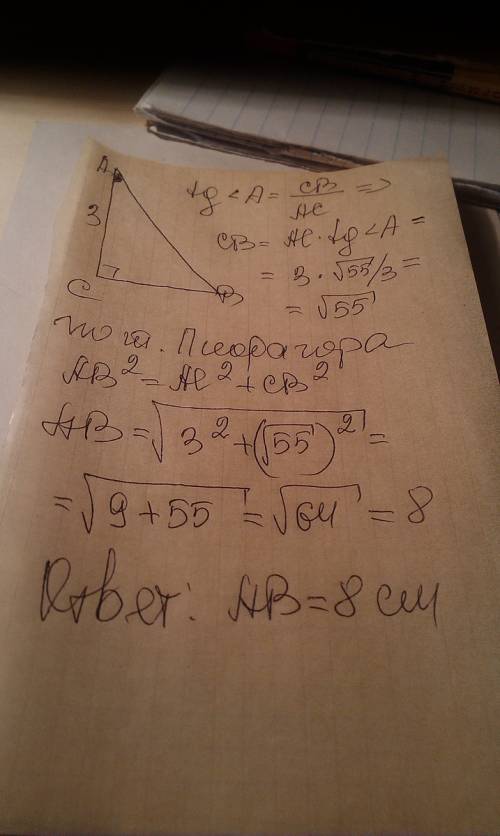 A
3
C
B
tg<A = CB/AC =>
CB = AC · tg<A =
= 3 · √55/3 =
= √55
по т. Пифагора
AB² = AC² + CB²
AB = √3² + (√55)² =
= √9 + 55 = √64 = 8
Ответ: AB = 8 см